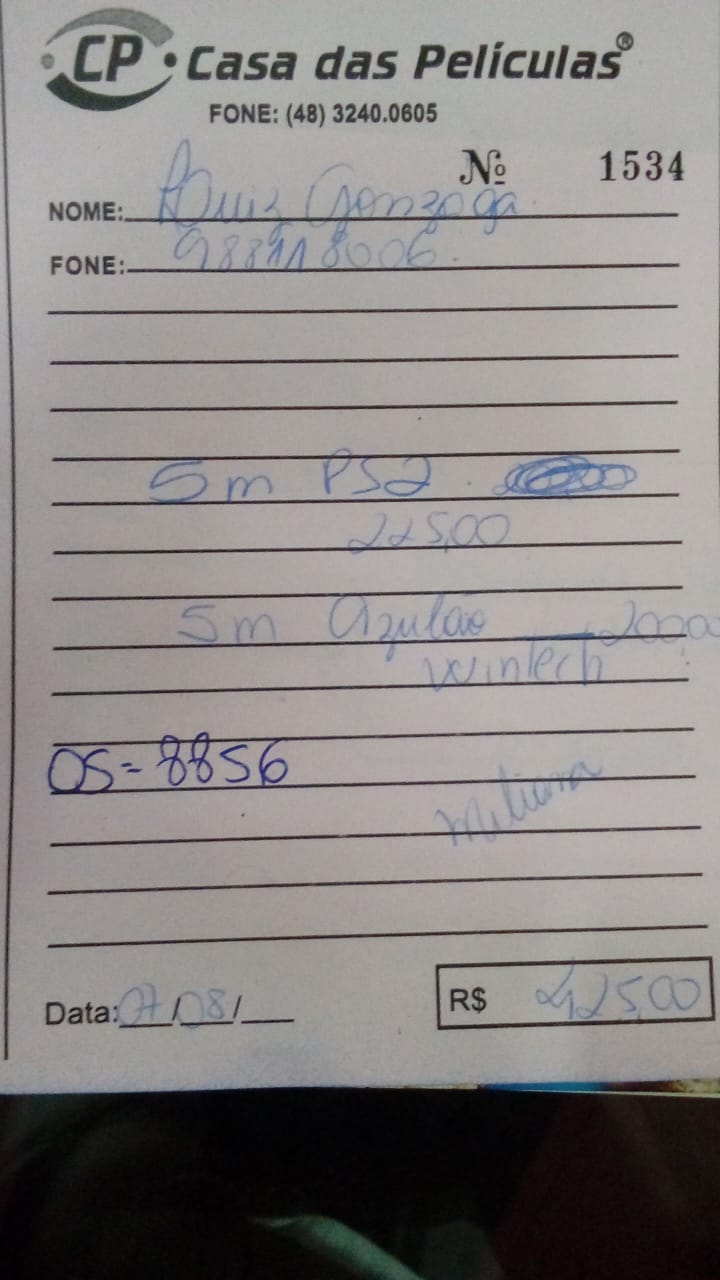 CP • Casa das Películas®
FONE: (48) 3240.0605
Nº 1534
NOME: Luiz Gonzaga
FONE: 988418006
5m PS2
225,00
5m Azulão 200,00
Wintech
OS = 8856
Miliana
Data: 07/08/
R$ 425,00